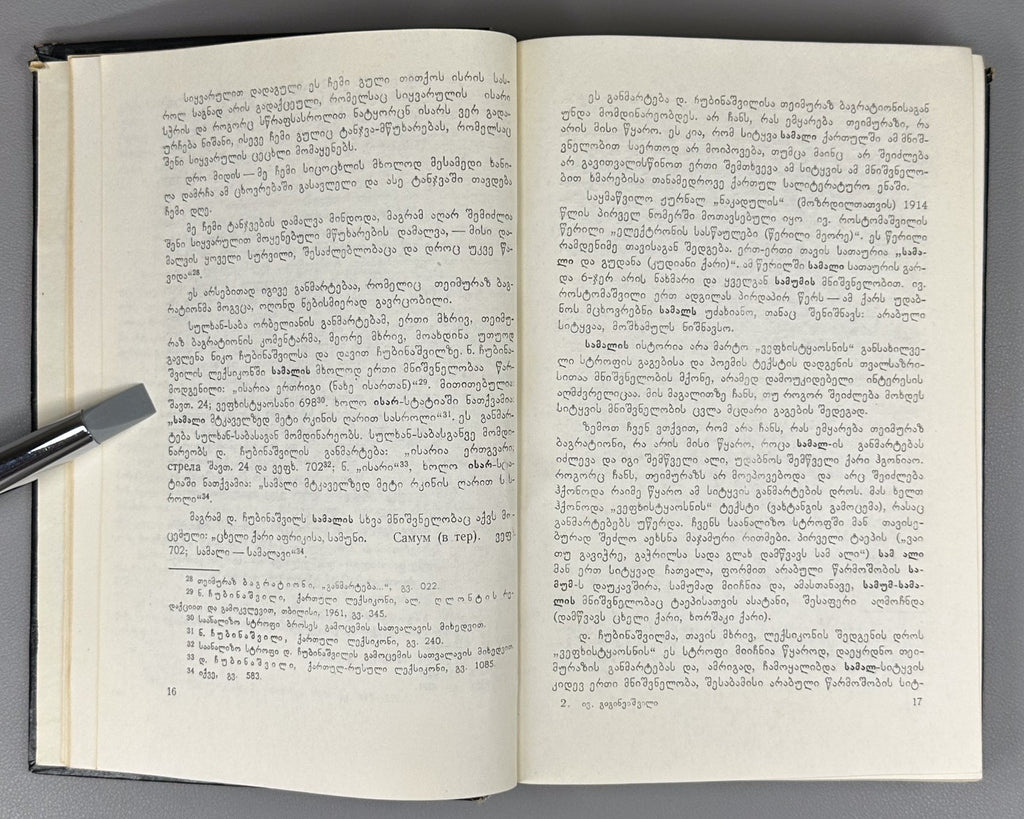 სიყვარულით დადაგული ეს ჩემი გული თითქოს ისრის სას-
როლ საგნად არის გადაქცეული, რომელსაც სიყვარულის ისარი
სჭრის და როგორც სწრაფსასროლით ნატყორცნ ისარს ვერ გადა-
ურჩება ნიშანი, ისევე ჩემი გულიც ტანჯვა-მწუხარებას, რომელსაც
შენი სიყვარულის ცეცხლი მომაყენებს.
დრო მიდის — მე ჩემი სიცოცხლის მხოლოდ მესამედი ხანი-
ღა დამრჩა ამ ცხოვრებაში გასავლელი და ასე ტანჯვაში თავდება
ჩემი დღე.
მე ჩემი ტანჯვების დამალვა მინდოდა, მაგრამ აღარ შემიძლია
შენი სიყვარულით მოყენებული მწუხარების დამალვა, — მისი და-
მალვის ყოველი სურვილი, შესაძლებლობაცა და დროც უკვე წა-
ვიდა“28.
ეს არსებითად იგივე განმარტებაა, რომელიც თეიმურაზ ბაგ-
რატიონმა მოგვცა, ოღონდ ნებისმიერად გავრცობილი.
სულხან-საბა ორბელიანის განმარტებამ, ერთი მხრივ, თეიმუ-
რაზ ბაგრატიონის კომენტარმა, მეორე მხრივ, მოახდინა უთუოდ
გავლენა ნიკო ჩუბინაშვილსა და დავით ჩუბინაშვილზე. ნ. ჩუბინა-
შვილის ლექსიკონში სამალის მხოლოდ ერთი მნიშვნელობაა წარ-
მოდგენილი: „ისარია ერთრიგი (ნახე ისართან)“29. მითითებულია:
შავთ. 24; ვეფხისტყაოსანი 69830. ხოლო ისარ-სტატიაში ნათქვამია:
„სამალი მტკაველზედ მეტი რკინის ღარით სასროლი“31. ეს განმარ-
ტება სულხან-საბასაგან მომდინარეობს. სულხან-საბასგანვე მომდი-
ნარეობს დ. ჩუბინაშვილის განმარტება: „ისარია ერთგვარი,
стрела შავთ. 24 და ვეფხ. 70232; ნ. „ისარი“33, ხოლო ისარ-სტა-
ტიაში ნათქვამია: „სამალი მტკაველზედ მეტი რკინის ღარით სას-
როლი“34.
მაგრამ დ. ჩუბინაშვილს სამალის სხვა მნიშვნელობაც აქვს მი-
ცემული: „ცხელი ქარი აფრიკისა, სამუნი. Самум (в тер). ვეფ.
702; სამალი — სამალავი“34.
28 თეიმურაზ ბაგრატიონი, „განმარტება...“, გვ. 022.
29 ნ. ჩუბინაშვილი, ქართული ლექსიკონი, ალ. ღლონტის რე-
დაქციით და გამოკვლევით, თბილისი, 1961, გვ. 345.
30 საანალიზო სტროფი ბროსეს გამოცემის სათვალავის მიხედვით.
31 ნ. ჩუბინაშვილი, ქართული ლექსიკონი, გვ. 240.
32 საანალიზო სტროფი დ. ჩუბინაშვილის გამოცემის სათვალავის მიხედვით.
33 დ. ჩუბინაშვილი, ქართულ-რუსული ლექსიკონი, გვ. 1085.
34 იქვე, გვ. 583.
16
ეს განმარტება დ. ჩუბინაშვილისა თეიმურაზ ბაგრატიონისაგან
უნდა მომდინარეობდეს. არ ჩანს, რას ემყარება თეიმურაზი, რა
არის მისი წყარო. ეს კია, რომ სიტყვა სამალი ქართულში ამ მნიშ-
ვნელობით საერთოდ არ მოიპოვება, თუმცა მაინც არ შეიძლება
არ გავითვალისწინოთ ერთი შემთხვევა ამ სიტყვის ამ მნიშვნელო-
ბით ხმარებისა თანამედროვე ქართულ სალიტერატურო ენაში.
საყმაწვილო ჟურნალ „ნაკადულის“ (მოზრდილთათვის) 1914
წლის პირველ ნომერში მოთავსებული იყო ივ. როსტომაშვილის
წერილი „ელექტრონის სასწაულები (წერილი მეორე)“. ეს წერილი
რამდენიმე თავისაგან შედგება. ერთ-ერთი თავის სათაურია „სამა-
ლი და გუდანა (კუდიანი ქარი)“. ამ წერილში სამალი სათაურის გარ-
და 6-ჯერ არის ნახმარი და ყველგან სამუმის მნიშვნელობით. ივ.
როსტომაშვილი ერთ ადგილას პირდაპირ წერს — ამ ქარს უდაბ-
ნოს მცხოვრებნი სამალს უძახიანო, თანაც შენიშნავს: არაბული
სიტყვაა, მოშხამულს ნიშნავსო.
სამალის ისტორია არა მარტო „ვეფხისტყაოსნის“ განსახილვე-
ლი სტროფის გაგებისა და პოემის ტექსტის დადგენის თვალსაზრი-
სითაა მნიშვნელობის მქონე, არამედ დამოუკიდებელი ინტერესის
აღმძვრელიცაა. მის მაგალითზე ჩანს, თუ როგორ შეიძლება მოხდეს
სიტყვის მნიშვნელობის ცვლა მცდარი გაგების შედეგად.
ზემოთ ჩვენ ვთქვით, რომ არა ჩანს, რას ემყარება თეიმურაზ
ბაგრატიონი, რა არის მისი წყარო, როცა სამალ-ის განმარტებას
იძლევა და იგი შემწველი ალი, უდაბნოს შემწველი ქარი ჰგონიაო.
როგორც ჩანს, თეიმურაზს არ მოეპოვებოდა და არც შეიძლება
ჰქონოდა რაიმე წყარო ამ სიტყვის განმარტების დროს. მას ხელთ
ჰქონოდა „ვეფხისტყაოსნის“ ტექსტი (ვახტანგის გამოცემა), რასაც
განმარტებებს უწერდა. ჩვენს საანალიზო სტროფში მან თავისე-
ბურად შეძლო აეხსნა მაჯამური რითმები. პირველი ტაეპის („ვაი
თუ გავიჭრე, გაჭრილსა სადა გლახ დამწვავს სამ ალი“) სამ ალი
მან ერთ სიტყვად ჩათვალა, ფორმით არაბული წარმოშობის სა-
მუმ-ს დაუკავშირა, სამუმად მიიჩნია და, ამასთანავე, სამუმ-სამა-
ლის მნიშვნელობაც ტაეპისათვის ასატანი, შესაფერი აღმოჩნდა
(დამწვავს ცხელი ქარი, ხორშაკი ქარი).
დ. ჩუბინაშვილმა, თავის მხრივ, ლექსიკონის შედგენის დროს
„ვეფხისტყაოსნის“ ეს სტროფი მიიჩნია წყაროდ, დაეყრდნო თეი-
მურაზის განმარტებას და, ამრიგად, ჩამოყალიბდა სამალ-სიტყვის
კიდევ ერთი მნიშვნელობა, შესაბამისი არაბული წარმოშობის სიტ-
2. ივ. გიგინეიშვილი
17